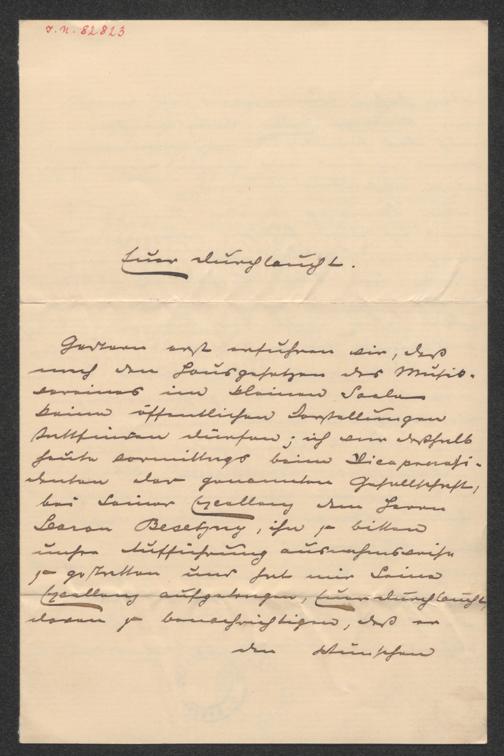 J.N. 82823
Euer Durchlaucht.
Gestern erst erfuhren wir, daß
nach den Hausgesetzen des Musik-
vereines im kleinen Saale
keine öffentlichen Vorstellungen
stattfinden dürfen; ich war deshalb
heute vormittags beim Vicepraesi-
denten der genannten Gesellschaft,
bei Seiner Excellenz dem Herrn
Baron Bezecny, ihn zu bitten
unsre Aufführung ausnahmsweise
zu gestatten und hat mir Seine
Excellenz aufgetragen, Euer Durchlaucht,
davon zu benachrichtigen, daß er
den Wünschen